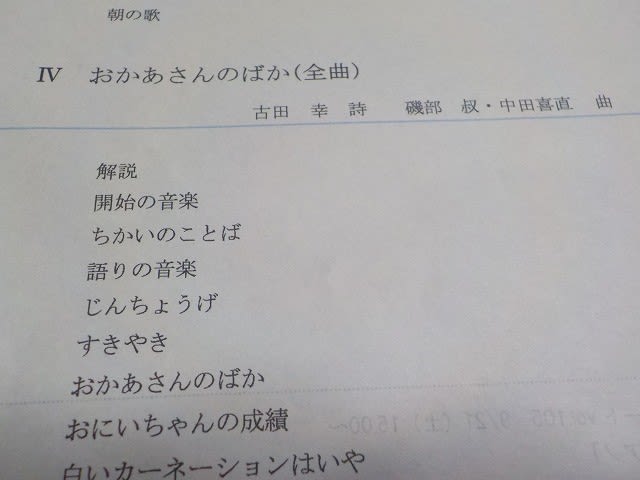 朝の歌
Ⅳ おかあさんのばか(全曲)
古田 幸 詩 磯部 俶・中田喜直 曲
解説
開始の音楽
ちかいのことば
語りの音楽
じんちょうげ
すきやき
おかあさんのばか
おにいちゃんの成績
白いカーネーションはいや